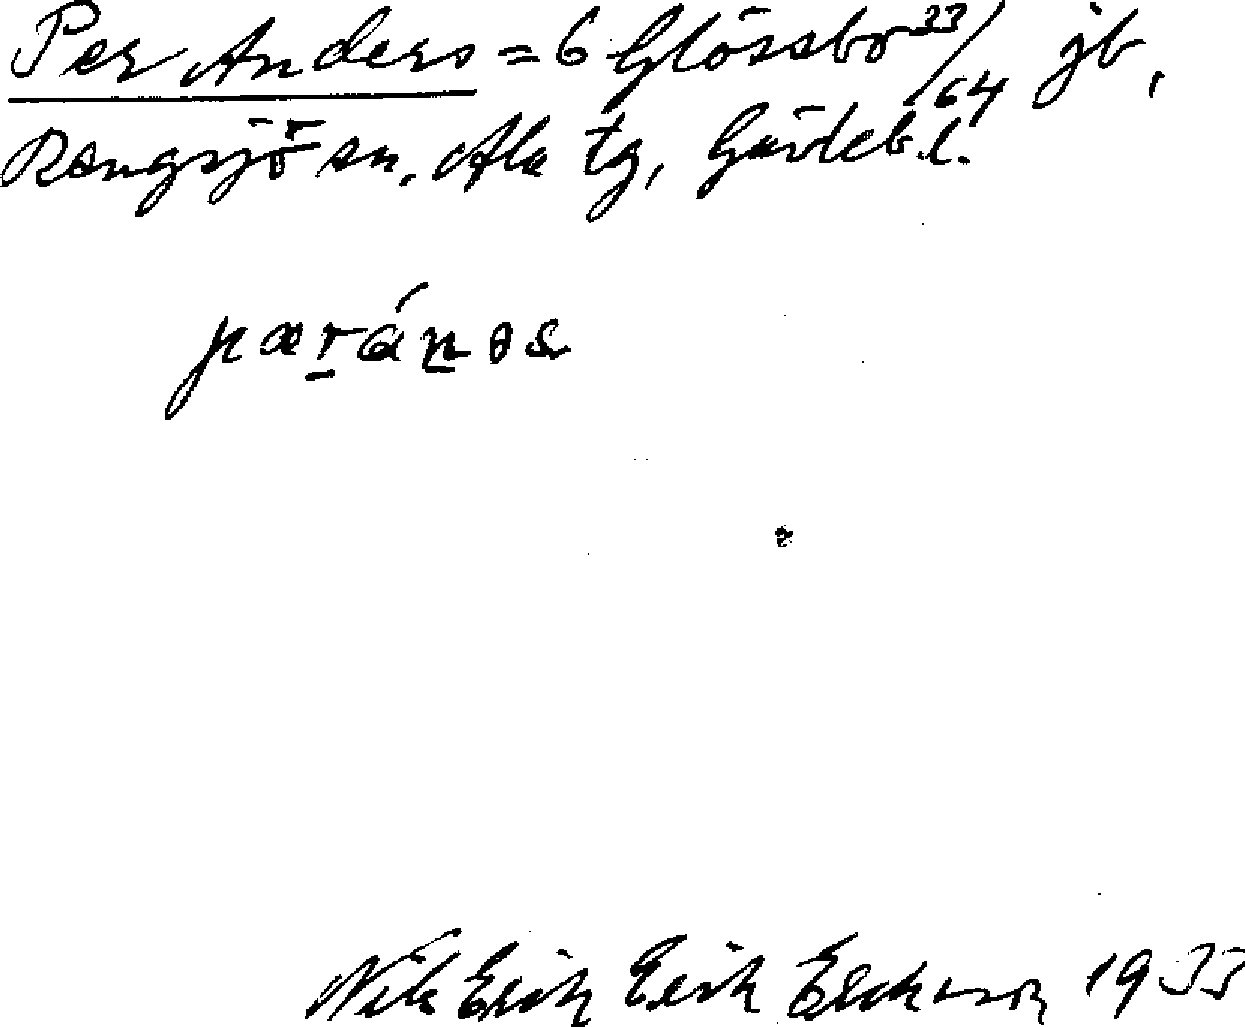 Per Anders = 6 Glössbo 33/64 jb,
Rengsjö sn. Ala tg, Gävleb.l.
pæránɒs
Nils Erik Erik Erickson 1933